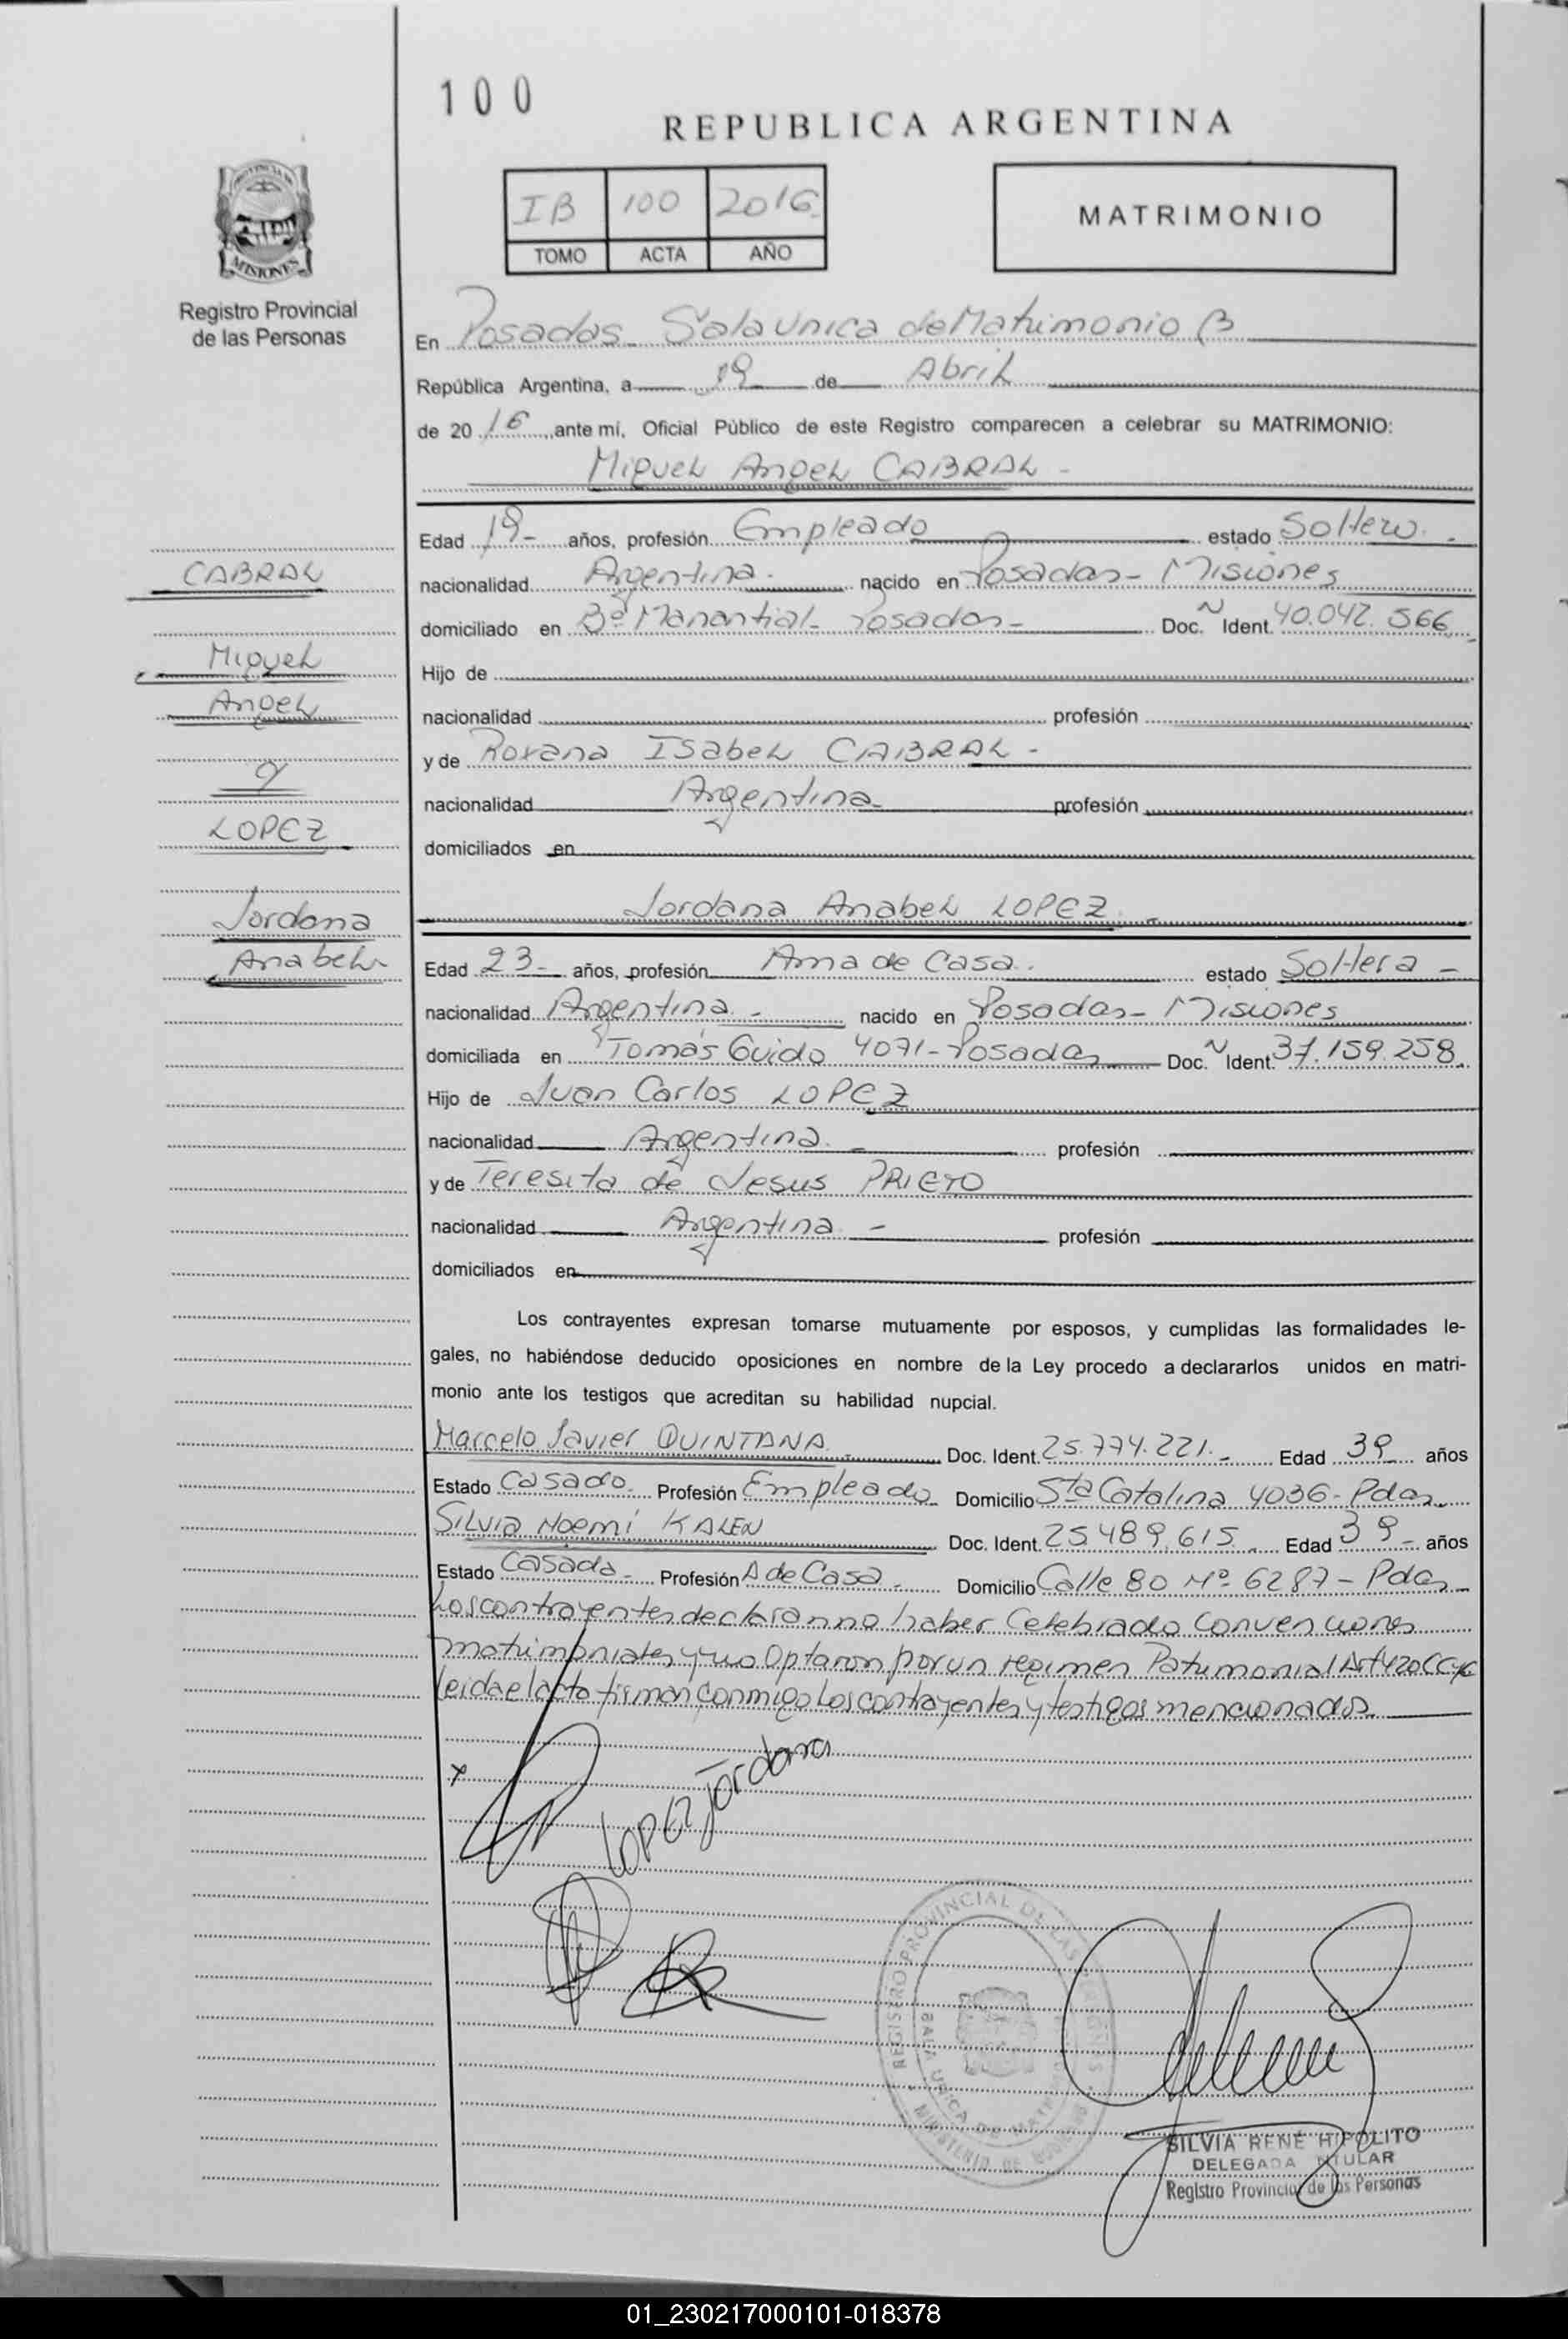 100
REPUBLICA ARGENTINA
IB 100 2016
TOMO ACTA AÑO
MATRIMONIO
PROVINCIA DE
MISIONES
Registro Provincial
de las Personas
En Posadas - Sala Unica de Matrimonio B
República Argentina, a 19 de Abril
de 2016 ante mí, Oficial Público de este Registro comparecen a celebrar su MATRIMONIO:
Miguel Angel CABRAL -
Edad 19- años, profesión Empleado estado Soltero.
CABRAL
nacionalidad Argentina. nacido en Posadas - Misiones
domiciliado en Bº Manantial - Posadas - Doc. N Ident. 40.042.566
Miguel
Hijo de
Angel
nacionalidad profesión
y de Roxana Isabel CABRAL -
y
nacionalidad Argentina- profesión
LOPEZ
domiciliados en
Jordana
Jordana Anabel LOPEZ. -
Anabel
Edad 23- años, profesión Ama de Casa. estado Soltera -
nacionalidad Argentina. - nacido en Posadas - Misiones
domiciliada en Tomás Guido 4071 - Posadas Doc. N Ident. 37.159.258
Hijo de Juan Carlos LOPEZ
nacionalidad Argentina. - profesión
y de Teresita de Jesus PRIETO
nacionalidad Argentina - profesión
domiciliados en
Los contrayentes expresan tomarse mutuamente por esposos, y cumplidas las formalidades le-
gales, no habiéndose deducido oposiciones en nombre de la Ley procedo a declararlos unidos en matri-
monio ante los testigos que acreditan su habilidad nupcial.
Marcelo Javier QUINTANA - Doc. Ident. 25.774.221. - Edad 39 años
Estado Casado. Profesión Empleado Domicilio Sta Catalina 4036 - Pdas
Silvia Noemí KALEN Doc. Ident. 25.489.615 Edad 39 - años
Estado Casada - Profesión A de Casa - Domicilio Calle 80 Nº 6287 - Pdas
Los contrayentes declaran no haber Celebrado Convenciones
matrimoniales y no Optaron por un regimen Patrimonial Art 420 CCyC
leida el acta firman conmigo Los contrayentes y testigos mencionados
x
LOPEZ Jordana
REGISTRO PROVINCIAL DE LAS PERSONAS
SALA UNICA DE MATRIMONIO
MINISTERIO DE GOBIERNO
SILVIA RENÉ HIPOLITO
DELEGADA TITULAR
Registro Provincial de las Personas
01_230217000101-018378